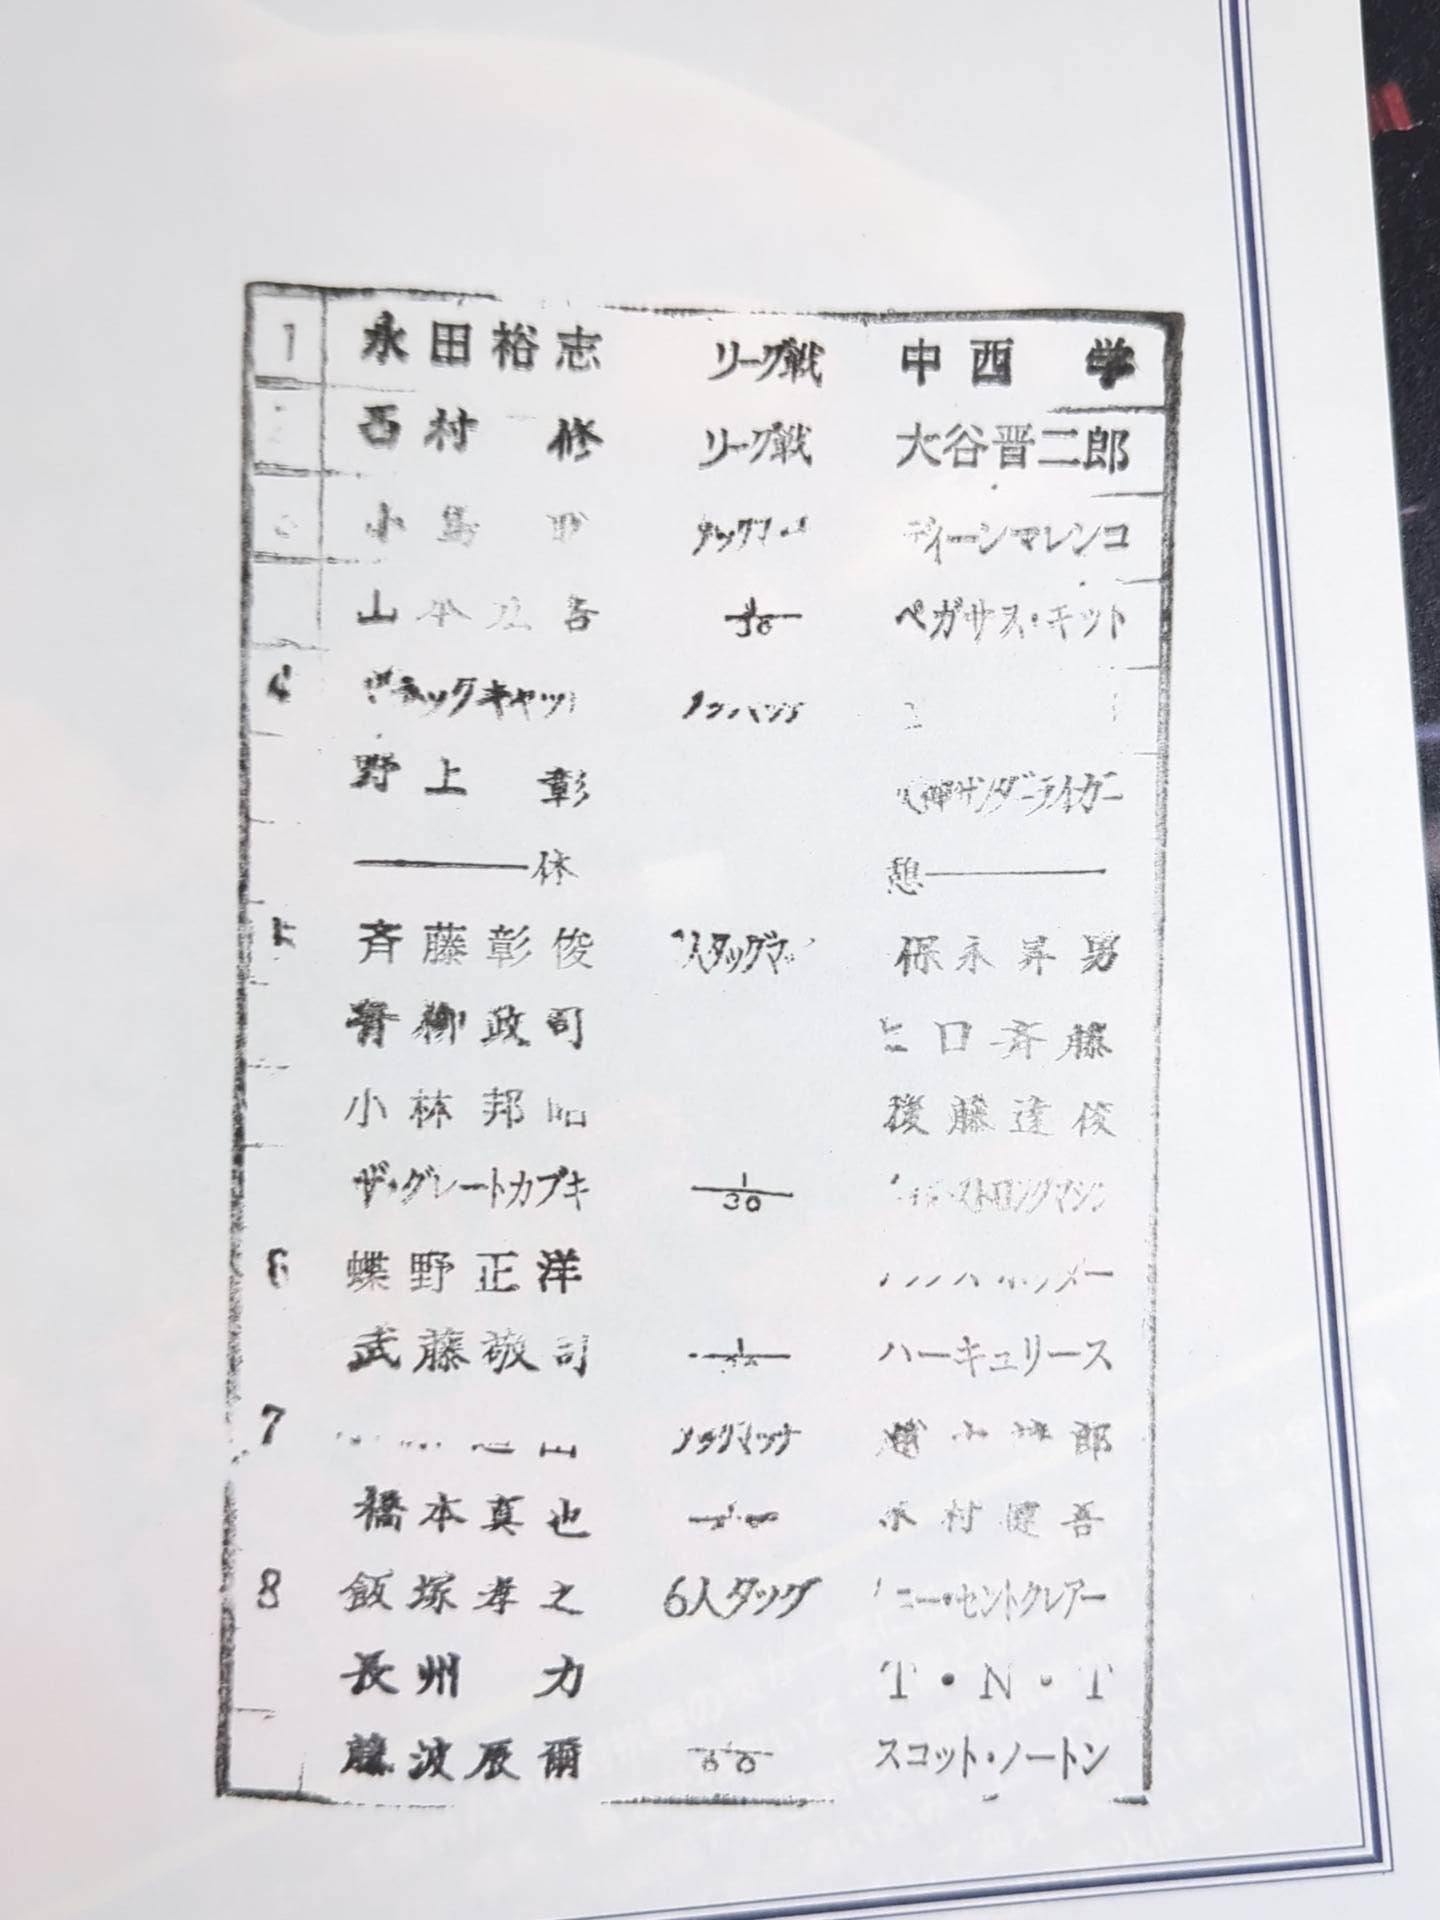 1 永田裕志 リーグ戦 中西 学
西村 修 リーグ戦 大谷晋二郎
小島 ディーンマレンコ
山本 吾 1/30 ペガサス・キット
4
野上 彰 サンダーライガー
休 憩
5 斉藤彰俊 人タッグマッ 保永昇男
青柳政司 ヒロ斉藤
小林邦昭 後藤達俊
ザ・グレートカブキ 1/30 ストロングマシン
6 蝶野正洋
武藤敬司 ハーキュリース
7 郎
橋本真也 木村健吾
8 飯塚孝之 6人タッグ ニー・セントクレアー
長州 力 T・N・T
藤波辰爾 スコット・ノートン